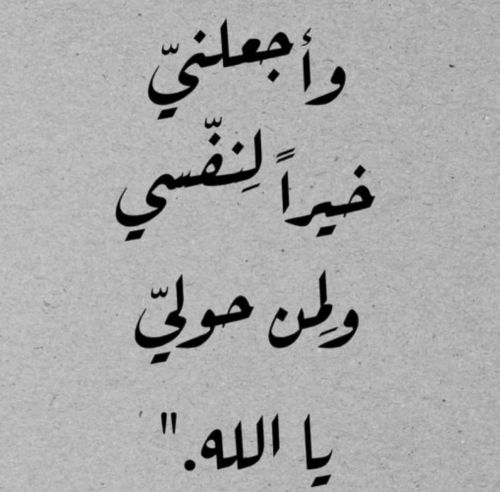 وأجعلنيّ
خيراً لِنفّسي
ولِمن حوليّ
يا الله."